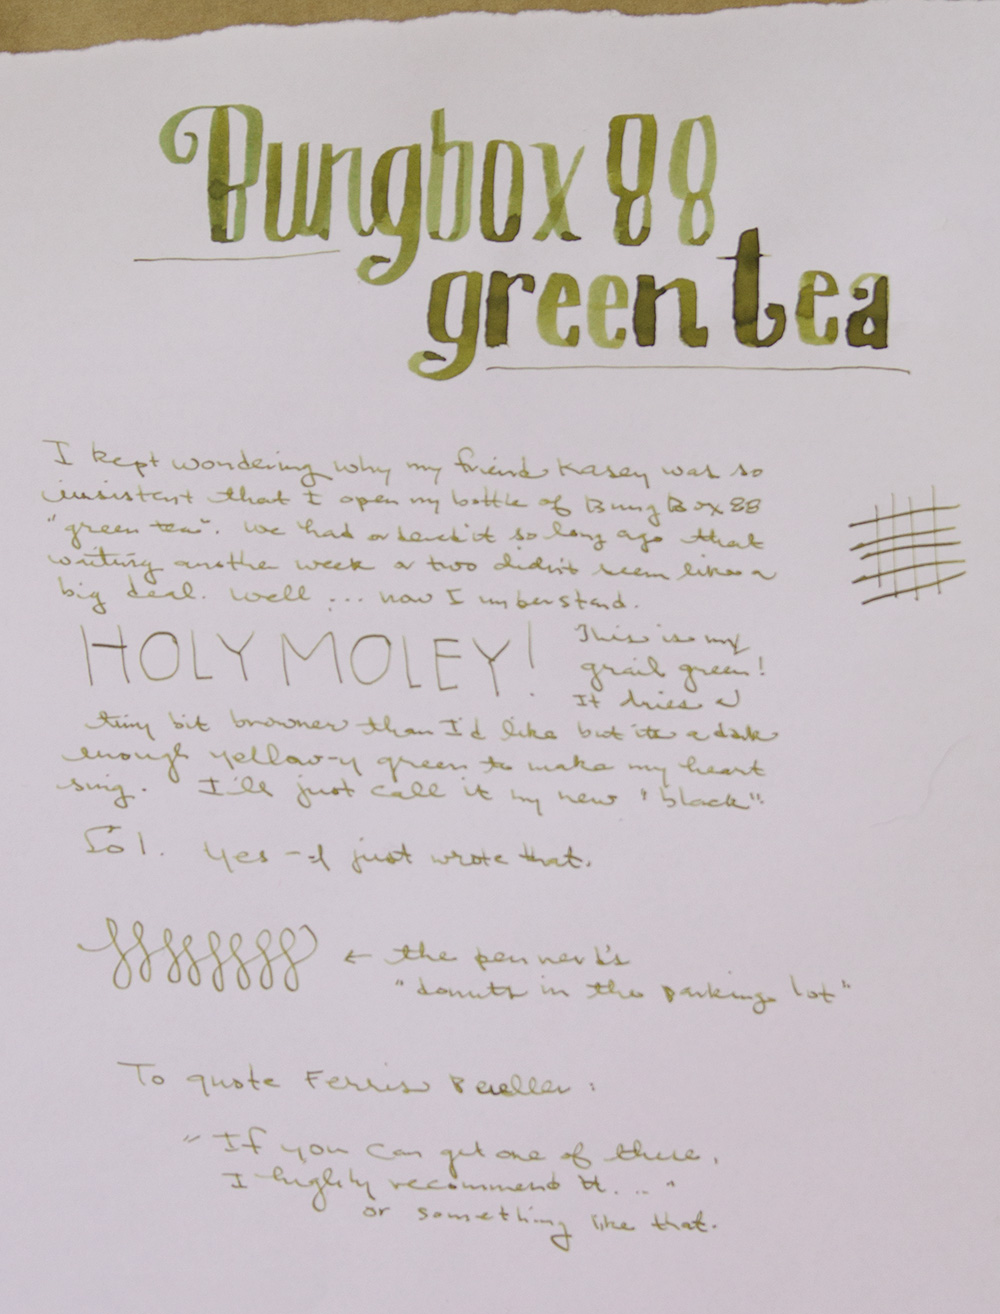 Bungbox 88
green tea
I kept wondering why my friend Kasey was so
insistent that I open my bottle of Bung Box 88
"green tea". We had ordered it so long ago that
waiting another week or two didn't seem like a
big deal. Well ... now I understand.
HOLY MOLEY! This is my
grail green!
It dries a
tiny bit browner than I'd like but it's a dark
enough yellow-y green to make my heart
sing. I'll just call it my new "black".
Lol. Yes - I just wrote that.
← the pen nerd's
"donuts in the parking lot"
To quote Ferris Bueller:
"If you can get one of these,
I highly recommend it..."
or something like that.